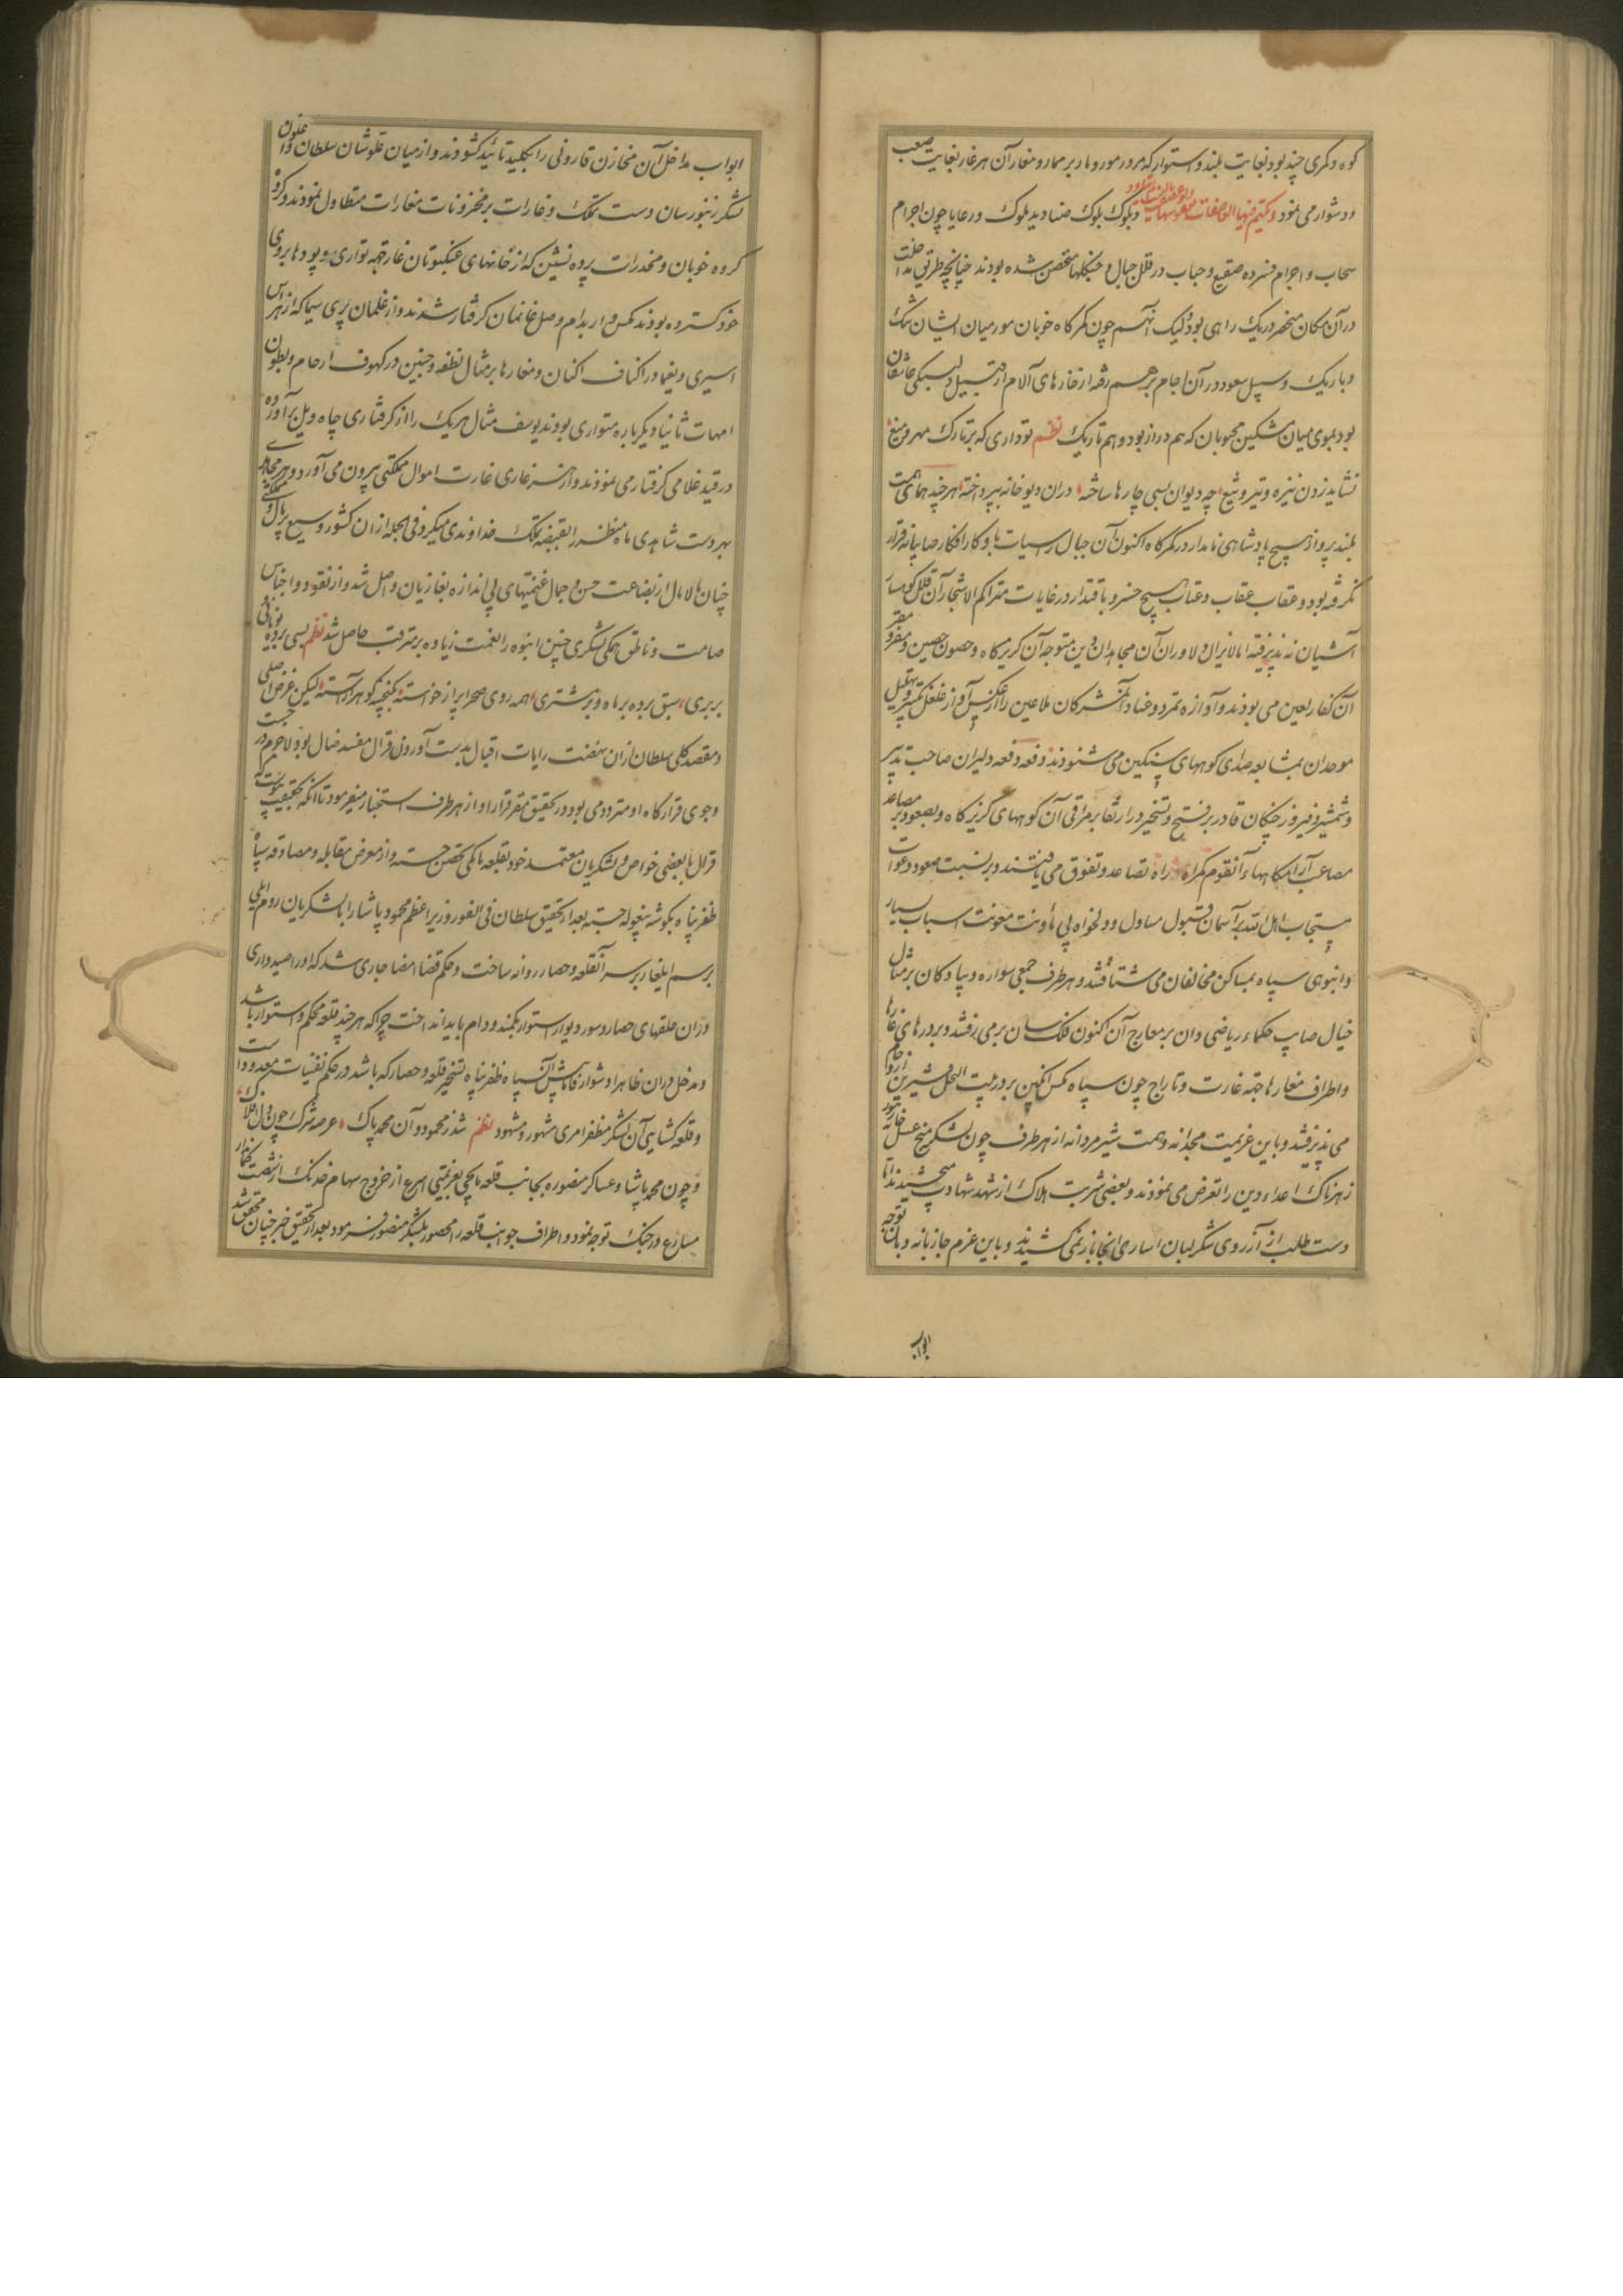 کوه و کمری چند بود بغایت بلند و استوار که مرور مور و مار بر ممار و مغار آن هر غار بغایت صعب
و دشوار می نمود و بلوک بلوک صنادید ملوک و رعایا چون اجرام
سحاب و اجرام فسرده صقیع و حباب در قلل جبال و جنگلها متحصن شده بودند چنانچه طریق مداخلت
در آن مکان منحصر در یک راهی بود و لیک آنهم چون کمرگاه خوبان مور میان ایشان تنگ
و باریک و سبیل صعود در آن اجام بر هم رفته از خارهای آلام از قبیل دلبستگی عاشقان
بود بموی میان مشکین محبوبان که هم دراز بود و هم تاریک نظم تو داری که بر تارک مهر و میغ
نشاید زدن نیزه و تیر و تیغ چه دیوان بسی چارها ساخته در ان دیو خانه بپرداخته هر چند همای همت
بلند پرواز هیچ پادشاهی نامدار در کمرگاه اکنون آن جبال راسیات با وکار افکار صایبانه قرار
نگرفته بود و عقاب عقاب و عتاب هیچ خسرو با قتدار در غابات متراکم الاشجار آن قلل کوهسار
آشیانه نپذیرفته اما لایزال دلاوران آن مجاهدان دین متوجه آن گریزگاه و حصون حصین و مقر و مفر
آن کفار لعین می بودند و آوازه تمرد و عناد آن مشرکان ملاعین را از عکس آواز غلغل تکبیر و تهلیل
موحدان بمشابعه صدای کوههای سنگین می شنودند دفعه دفعه دلیران صاحب تدبیر
و شمشیر و فیروز جنگان قادر بر فتح و تسخیر در ارتقا بر مراقی آن کوههای گریزگاه و بصعود بر مصاعد
مصاعب آرامگاهاء آنقوم گمراه راه تصاعد و تفوق می یافتند و بر نسبت صعود دعوات
مستجاب اهل الله بر آسمان قبول مساول و دلخواه بی معاونت معونت اسباب بسیار
و انبوهی سپاه بمساکن مخالفان می شتافتند و هر طرف جمعی سواره و پیادگان بر مثال
خیال صایب حکماء ریاضی دان بر معارج آن کنون فلک سان بر می رفتند و بر درهای غارها
و اطراف مغارها جهة غارت و تاراج چون سپاه مگس انگبین بر در بیت النحل شیرین ازدحام
می پذیرفتند و باین عزیمت مجدانه و همت شیر مردانه از هر طرف چون لشکر منج عسل خانه زنبور
زهرناک اعداء دین را تعرض می نمودند و بعضی شربت هلاک از شهد شهادت می چشیدند اما
دست طلب از آرزوی شکرلبان اساری آنجا باز نمی کشیدند و باین عزم جازمانه و بان توجه
ابواب
ابواب مداخل آن مخازن قارونی را بکلید تائید گشودند و از میان قلوشان سلطان و اعوان
لشکر زنبورسان دست تملک و غارات بر مخزونات مغارات متطاول نمودند و گروه
گروه خوبان و مخدرات پرده نشین که از خانهای عنکبوتان غار جهة تواری تار و پودها بروی
خود گسترده بودند مگس وار بدام وصل غانمان گرفتار شدند و از غلمان پری سیما که از هراس
اسیری و یغما در اکناف اکنان و مغارها بر مثال نطفه و جنین در کهوف ارحام و بطون
امهات ثانیا دیگر باره متواری بودند یوسف مثال هر یک را از گرفتاری چاه ویل بر آورده
در قید غلامی گرفتار می نمودند و از هر غاری غارت اموال مملکتی بیرون می آورد و هر مجاهدی
بهر دست شاهدی ماه منظر را بقبضه تملک خداوندی میگرد فی الجمله از ان کشور وسیع پر مال و مملکتی
چنان مالامال از بضاعت حسن و جمال غنیمتهای بی اندازه بغازیان واصل شد و از نقود و اجناس
صامت و ناطق همگی لشکری چنین انبوه را نعمت زیاده بر مترقب حاصل شد نظم بسی برده یونانی و
بربری سبق برده بر ماه و بر مشتری همه روی صحرا پر از خواسته بگنجینه گوهر آراسته لیکن غرض اصلی
و مقصد کلی سلطان از ان نهضت رایات اقبال بدست آوردن قرال مفسد ضال بود لاجرم در جست
و جوی قرارگاه او متردد می بود و در تحقیق مقر قرار او از هر طرف استخبار میفرمود تا انکه بتحقیق پیوست که
قرال با بعضی خواص و لشکریان معتمد خود بقلعه تحصن جسته و از معرض مقابله و مصادقه سپاه
ظفر پناه بگوشه بیغوله جسته بعد از تحقیق سلطان فی الفور وزیر اعظم محمود پاشا را با لشکریان روم ایلی
برسم ایلغار بر سر آنقلعه و حصار روانه ساخت و حکم قضا امضا جاری شد که او را صیدواری
در ان حلقهای حصار و سور و دیوار استوار بکمند و دام باید انداخت چرا که هر چند قلعه محکم و استوار باشد
و مدخل در ان ظاهرا دشوار فاما پیش آن سپاه ظفر پناه تسخیر قلعه و حصار که باشد در حکم نفسیات معدود است
و قلعه گشایی آن لشکر مظفر امری مشهور و مشهود نظم شد ز محمود و آن محمد پاک عرصه شرک چون دل افلاک
و چون محمد پاشا و عساکر منصوره بجانب قلعه بعزیمتی اسرع از خروج سهام خدنگ از شصت کماندار
مسارع در جنگ توجه نمود و اطراف جوانب قلعه را محصور لشکر منصور فرمود بعد از تحقیق خبر چنان متحقق شد